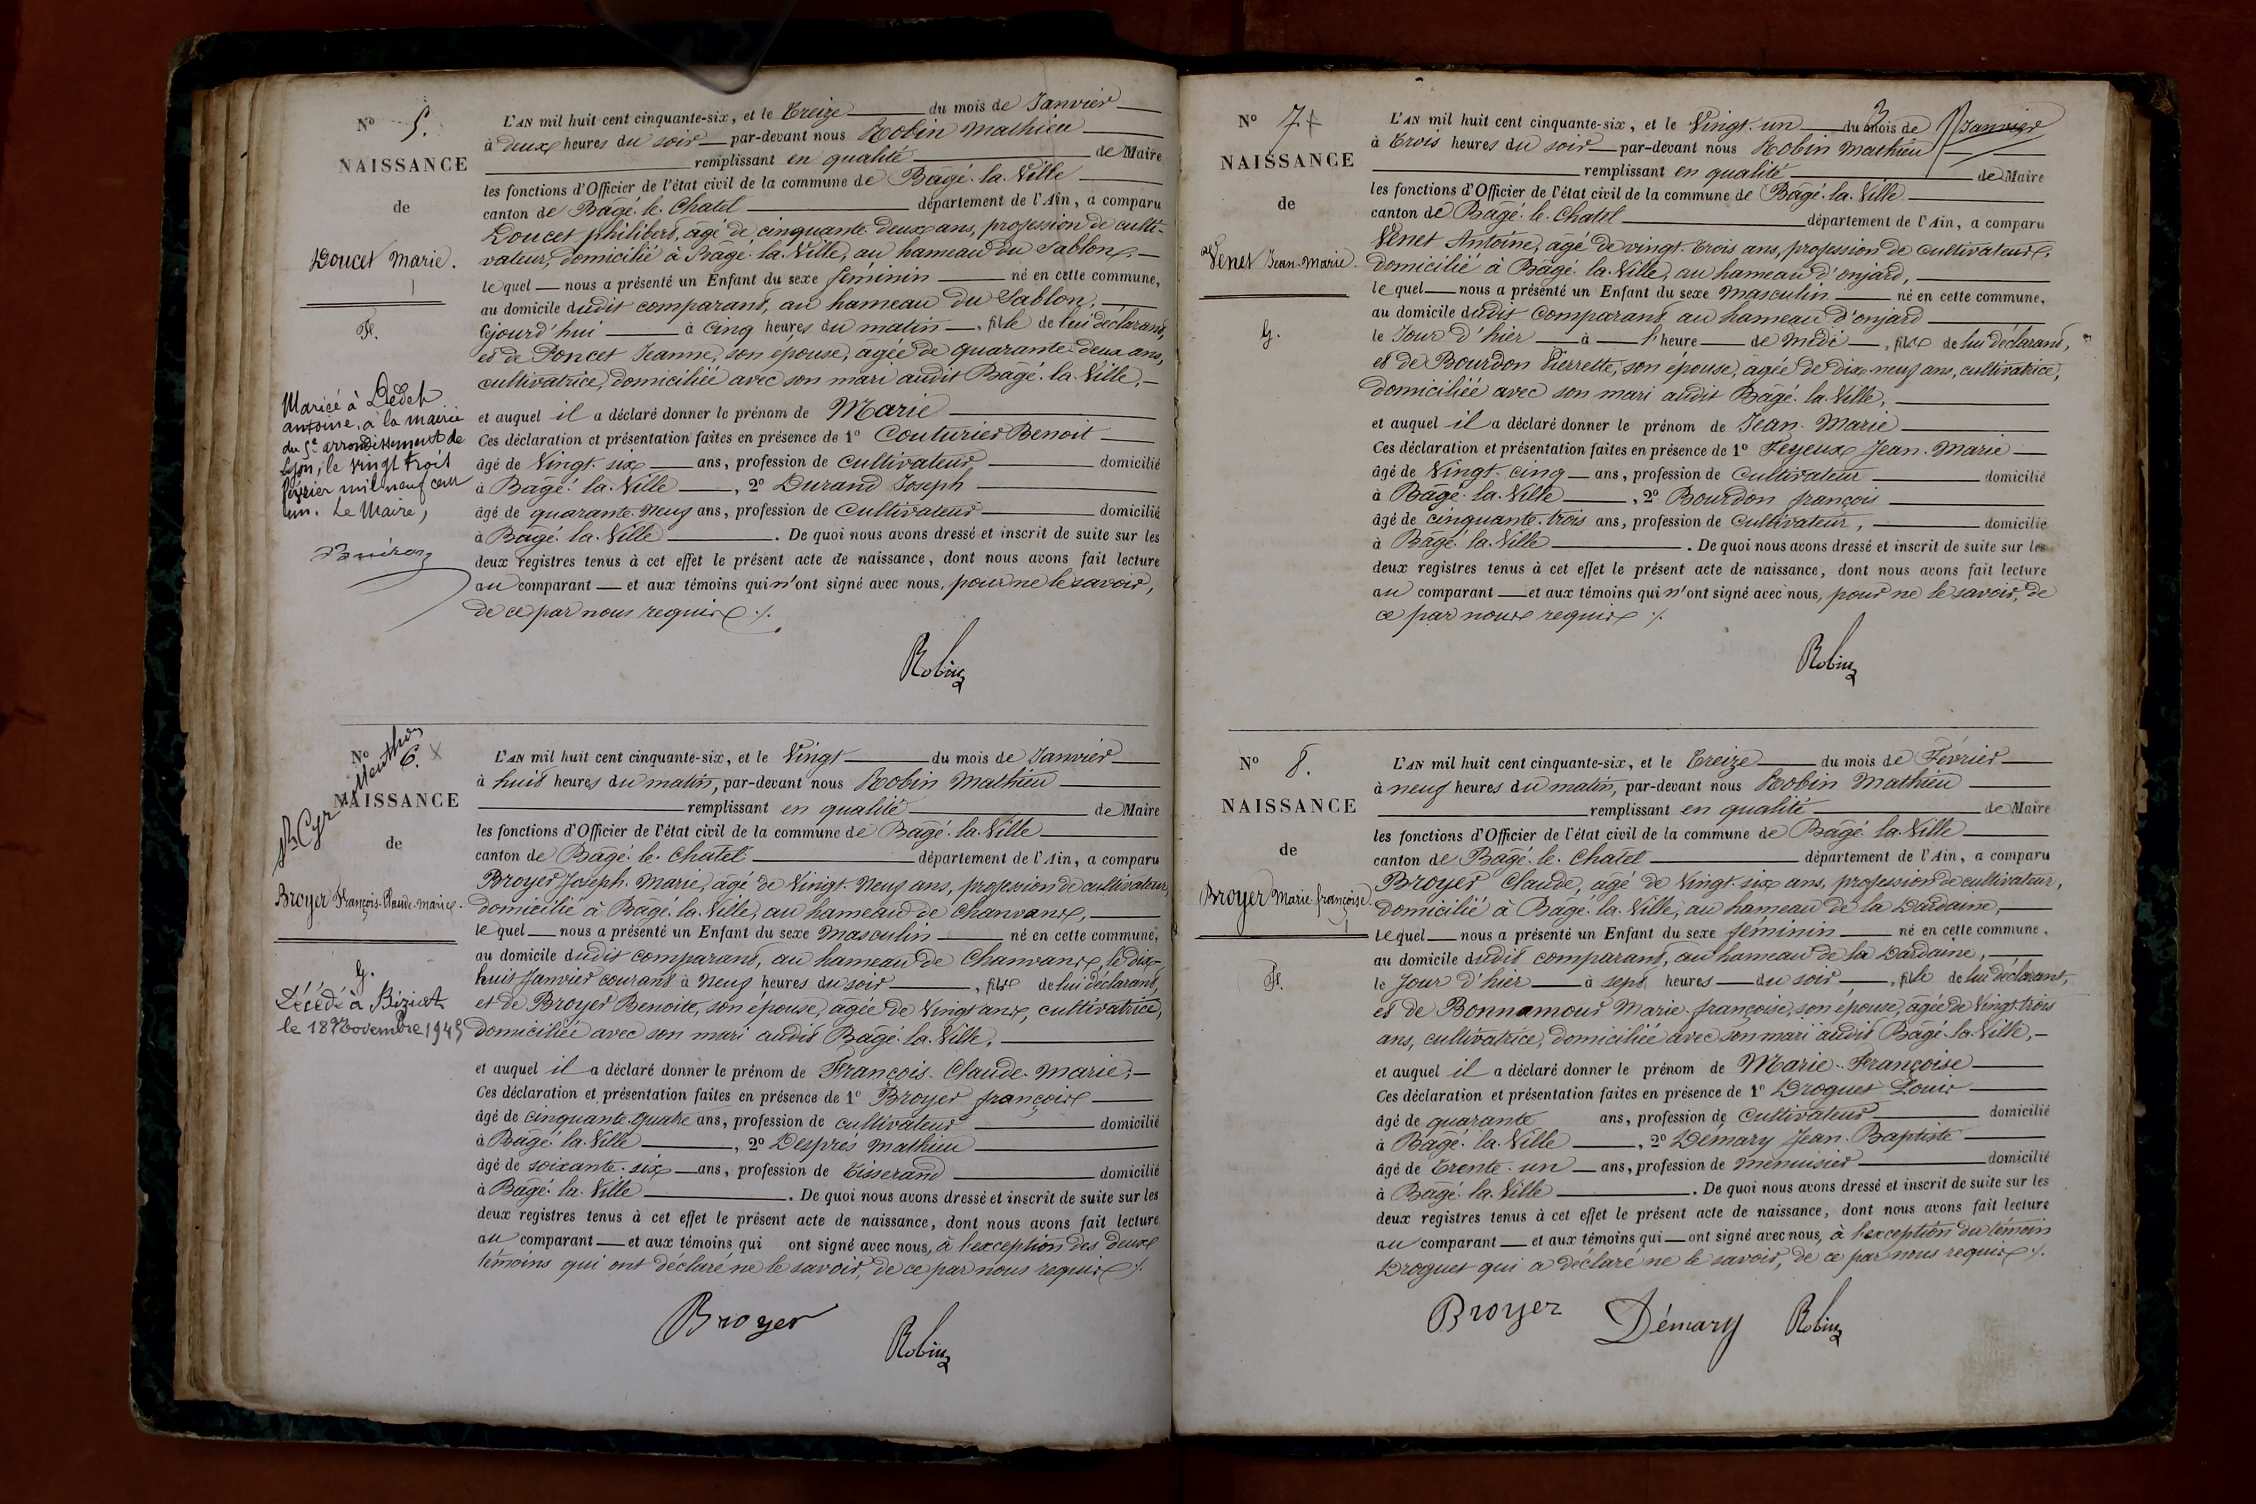 N° 5.
NAISSANCE
de
Doucet Marie.
F.
Mariée à Dédet
antoine, à la mairie
du 5e arrondissement de
Lyon, le vingt trois
février mil neuf cent
un. Le Maire,
L'AN mil huit cent cinquante-six, et le Treize du mois de Janvier
à deux heures du soir par-devant nous Robin Mathieu
remplissant en qualité de Maire
les fonctions d'Officier de l'état civil de la commune de Bagé-la-Ville
canton de Bâgé-le-Chatel département de l'Ain, a comparu
Doucet philibert, âgé de cinquante-deux ans, profession de culti-
vateur, domicilié à Bâgé-la-Ville, au hameau du Sablon,
lequel nous a présenté un Enfant du sexe féminin né en cette commune,
au domicile dudit comparant, au hameau du Sablon,
cejourd'hui à cinq heures du matin, fille de lui déclarant,
et de Poncet Jeanne, son épouse, âgée de quarante-deux ans,
cultivatrice, domiciliée avec son mari audit Bagé-la-Ville,
et auquel il a déclaré donner le prénom de Marie
Ces déclaration et présentation faites en présence de 1° Couturier Benoit
âgé de Vingt-six ans, profession de cultivateur domicilié
à Bagé-la-Ville, 2° Durand Joseph
âgé de quarante-neuf ans, profession de cultivateur domicilié
à Bagé-la-Ville. De quoi nous avons dressé et inscrit de suite sur les
deux registres tenus à cet effet le présent acte de naissance, dont nous avons fait lecture
au comparant et aux témoins qui n'ont signé avec nous, pour ne le savoir,
de ce par nous requis ./.
Robin
N° 6. X
St Cyr s/ Menthon
NAISSANCE
de
Broyer François-Claude-marie.
G.
Décédé à Biziat
le 18 Novembre 1945
L'AN mil huit cent cinquante-six, et le Vingt du mois de Janvier
à huit heures du matin, par-devant nous Robin Mathieu
remplissant en qualité de Maire
les fonctions d'Officier de l'état civil de la commune de Bagé-la-Ville
canton de Bâgé-le-Chatel département de l'Ain, a comparu
Broyer Joseph-Marie, âgé de Vingt-Neuf ans, profession de cultivateur,
domicilié à Bâgé-la-Ville, au hameau de Chanvans,
lequel nous a présenté un Enfant du sexe Masculin né en cette commune,
au domicile dudit comparant, au hameau de Chanvans, le dix-
huit Janvier courant à Neuf heures du soir, fils de lui déclarant,
et de Broyer Benoite, son épouse, âgée de Vingt ans, cultivatrice,
domiciliée avec son mari audit Bâgé-la-Ville,
et auquel il a déclaré donner le prénom de François-Claude-Marie,
Ces déclaration et présentation faites en présence de 1° Broyer françois
âgé de cinquante-quatre ans, profession de cultivateur domicilié
à Bâgé-la-Ville, 2° Desprès Mathieu
âgé de soixante-six ans, profession de tisserand domicilié
à Bâgé-la-Ville. De quoi nous avons dressé et inscrit de suite sur les
deux registres tenus à cet effet le présent acte de naissance, dont nous avons fait lecture
au comparant et aux témoins qui ont signé avec nous, à l'exception des deux
témoins qui ont déclaré ne le savoir, de ce par nous requis ./.
Broyer
Robin
N° 7
NAISSANCE
de
Venet Jean-Marie.
G.
L'AN mil huit cent cinquante-six, et le Vingt-un du mois de Janvier
à Trois heures du soir par-devant nous Robin Mathieu
remplissant en qualité de Maire
les fonctions d'Officier de l'état civil de la commune de Bâgé-la-Ville
canton de Bâgé-le-Chatel département de l'Ain, a comparu
Venet Antoine, âgé de vingt-trois ans, profession de cultivateur,
domicilié à Bâgé-la-Ville, au hameau d'onjard,
lequel nous a présenté un Enfant du sexe masculin né en cette commune,
au domicile dudit comparant, au hameau d'onjard
le Jour d'hier à l'heure de Midi, fils de lui déclarant,
et de Bourdon Pierrette, son épouse, âgée de dix-neuf ans, cultivatrice,
domiciliée avec son mari audit Bâgé-la-Ville,
et auquel il a déclaré donner le prénom de Jean-Marie
Ces déclaration et présentation faites en présence de 1° Feyeux Jean-Marie
âgé de Vingt-cinq ans, profession de cultivateur domicilié
à Bâgé-la-Ville, 2° Bourdon françois
âgé de cinquante-trois ans, profession de cultivateur, domicilié
à Bâgé-la-Ville. De quoi nous avons dressé et inscrit de suite sur les
deux registres tenus à cet effet le présent acte de naissance, dont nous avons fait lecture
au comparant et aux témoins qui n'ont signé avec nous, pour ne le savoir, de
ce par nous requis ./.
Robin
N° 8.
NAISSANCE
de
Broyer Marie-françoise.
F.
L'AN mil huit cent cinquante-six, et le Treize du mois de Février
à neuf heures du matin, par-devant nous Robin Mathieu
remplissant en qualité de Maire
les fonctions d'Officier de l'état civil de la commune de Bâgé-la-Ville
canton de Bâgé-le-Chatel département de l'Ain, a comparu
Broyer Claude, âgé de Vingt-six ans, profession de cultivateur,
domicilié à Bâgé-la-Ville, au hameau de la Dardaine,
lequel nous a présenté un Enfant du sexe féminin né en cette commune,
au domicile dudit comparant, au hameau de la Dardaine,
le Jour d'hier à sept heures du soir, fille de lui déclarant,
et de Bonnamour Marie-françoise, son épouse, âgée de Vingt-trois
ans, cultivatrice, domiciliée avec son mari audit Bâgé-la-Ville,
et auquel il a déclaré donner le prénom de Marie-Françoise
Ces déclaration et présentation faites en présence de 1° Droguet Louis
âgé de quarante ans, profession de cultivateur domicilié
à Bâgé-la-Ville, 2° Démary Jean-Baptiste
âgé de Trente-un ans, profession de menuisier domicilié
à Bâgé-la-Ville. De quoi nous avons dressé et inscrit de suite sur les
deux registres tenus à cet effet le présent acte de naissance, dont nous avons fait lecture
au comparant et aux témoins qui ont signé avec nous, à l'exception du témoin
Droguet qui a déclaré ne le savoir, de ce par nous requis ./.
Broyer Démary Robin